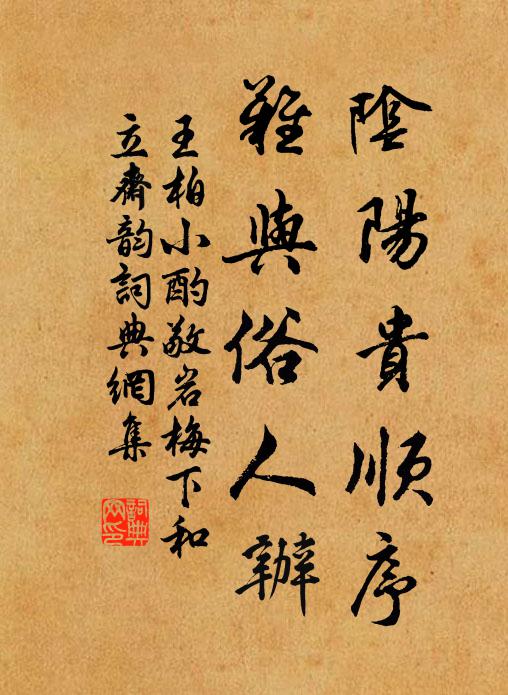 陰陽貴順序
難與俗人辦
王柏小酌敬岩梅下和
立齋韵詞典網集
詞典
网印